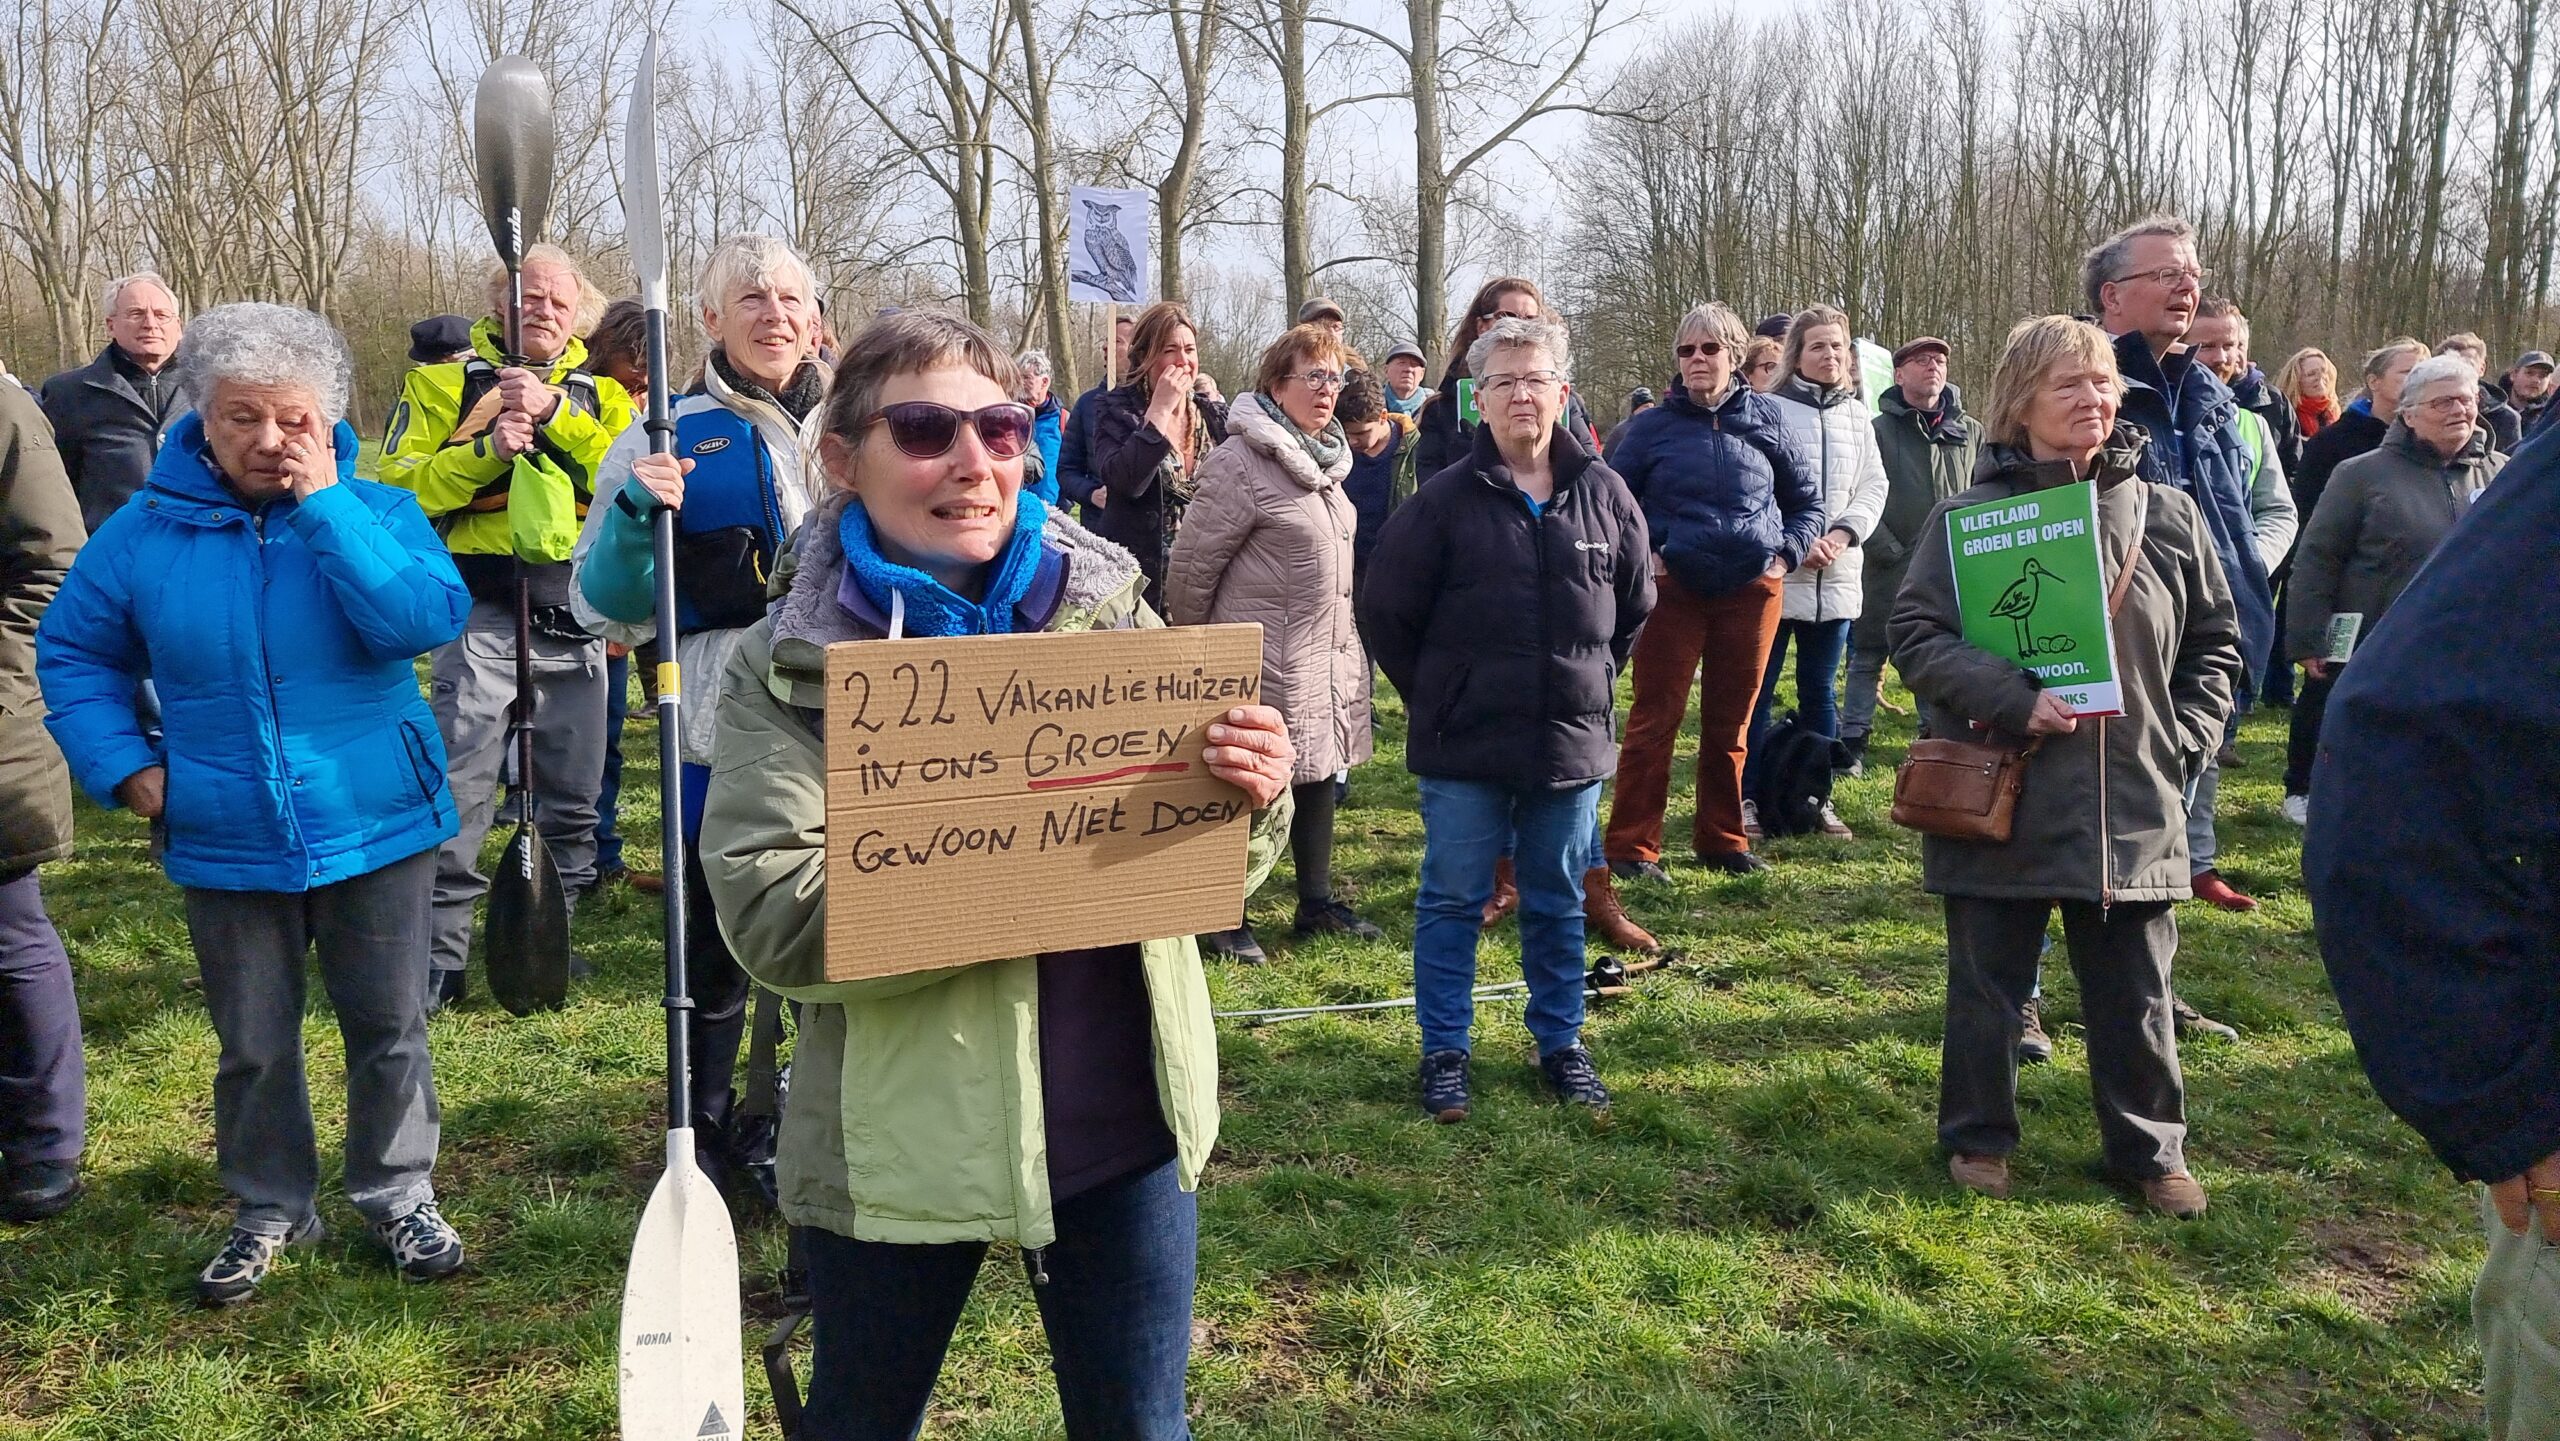 222 VAKANTIEHUIZEN
IN ONS GROEN
GEWOON NIET DOEN
VLIETLAND
GROEN EN OPEN
epic
epic
YAK
YUKON